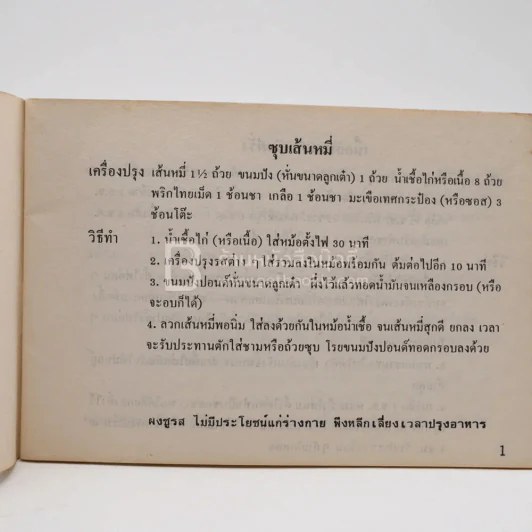 ซุบเส้นหมี่
เครื่องปรุง เส้นหมี่ 1½ ถ้วย ขนมปัง (หั่นขนาดลูกเต๋า) 1 ถ้วย น้ำเชื้อไก่หรือเนื้อ 8 ถ้วย
พริกไทยเม็ด 1 ช้อนชา เกลือ 1 ช้อนชา มะเขือเทศกระป๋อง (หรือซอส) 3
ช้อนโต๊ะ
วิธีทำ 1. น้ำเชื้อไก่ (หรือเนื้อ) ใส่หม้อตั้งไฟ 30 นาที
2. เครื่องปรุงรสต่าง ๆ ใส่รวมลงในหม้อพร้อมกัน ต้มต่อไปอีก 10 นาที
3. ขนมปังปอนด์หั่นขนาดลูกเต๋า ผึ่งไว้แล้วทอดน้ำมันจนเหลืองกรอบ (หรือ
จะอบก็ได้)
4. ลวกเส้นหมี่พอนิ่ม ใส่ลงด้วยกันในหม้อน้ำเชื้อ จนเส้นหมี่สุกดี ยกลง เวลา
จะรับประทานตักใส่ชามหรือถ้วยซุบ โรยขนมปังปอนด์ทอดกรอบลงด้วย
ผงชูรส ไม่มีประโยชน์แก่ร่างกาย พึงหลีกเลี่ยงเวลาปรุงอาหาร
1